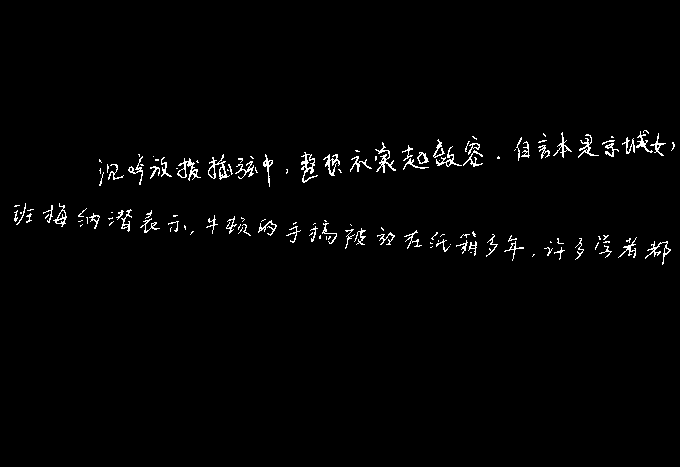 沉吟放拨插弦中，整顿衣裳起敛容．自言本是京城女，
班梅纳潜表示，牛顿的手稿被放在纸箱多年，许多学者都